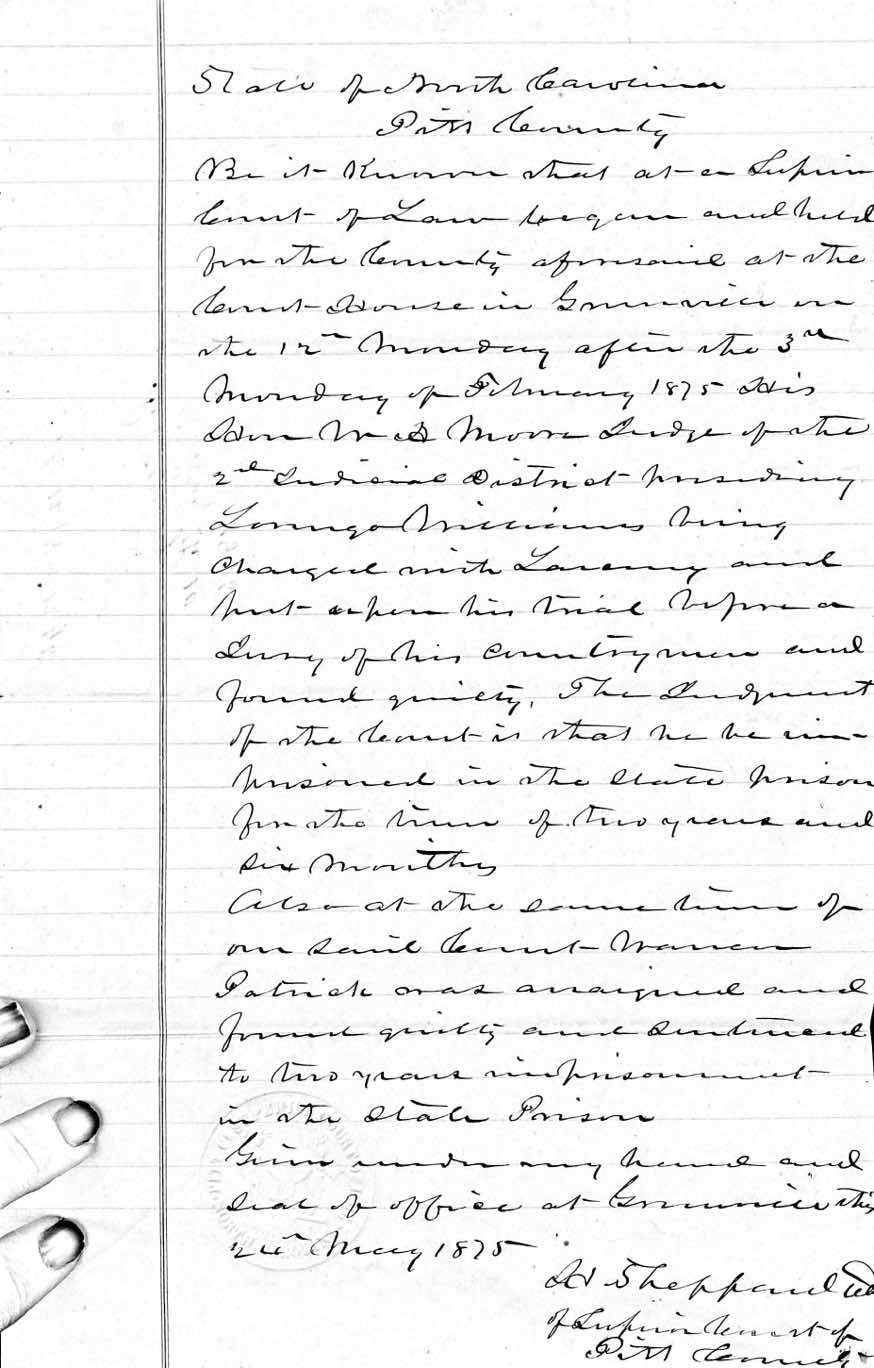 State of North Carolina
Pitt County
Be it Known that at a Superior
Court of Law began and held
for the County aforesaid at the
Court House in Greenville on
the 12th Monday after the 3rd
Monday of February 1875 His
Hon W A Moore Judge of the
2nd Judicial District presiding
Williams being
Charged with Larceny and
put upon his trial before a
Jury of his countrymen and
found guilty. The Judgment
of the Court is that he be im-
prisoned in the State prison
for the term of two years and
six months
Also at the same term of
our said Court Warren
Patrick was arraigned and
found guilty and sentenced
to two years imprisonment
in the State Prison
Given under my hand and
seal of office at Greenville this
May 1875
Sheppard
of Superior Court of
Pitt County